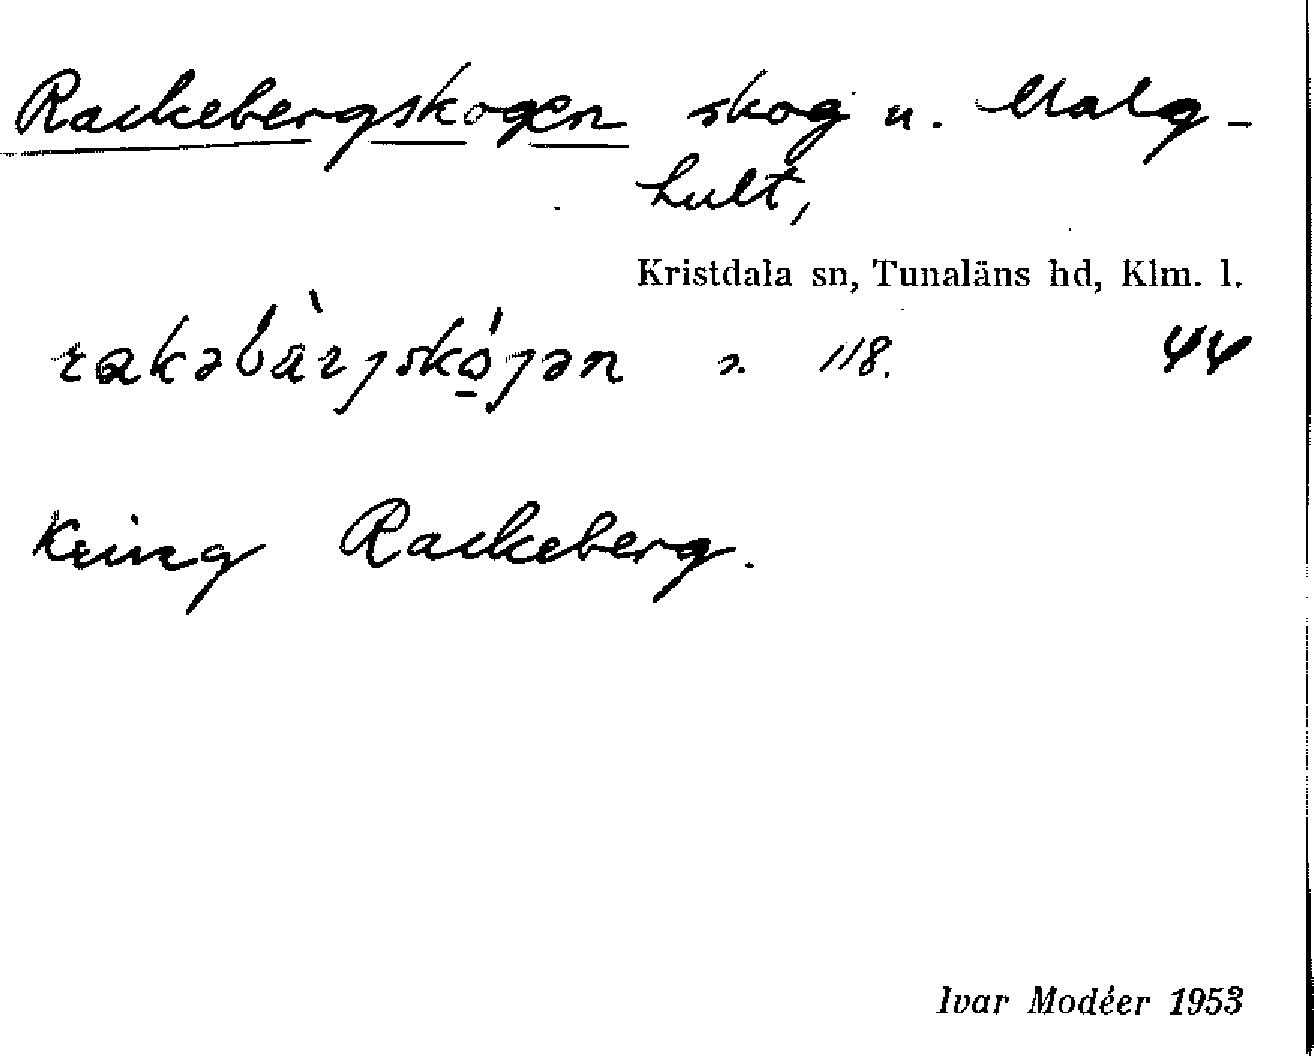 Rackebergskogen skog u. Malg-
hult,
Kristdala sn, Tunaläns hd, Klm. l.
rakəbàrjskójən s. 118. 44
Kring Rackeberg.
Ivar Modéer 1953